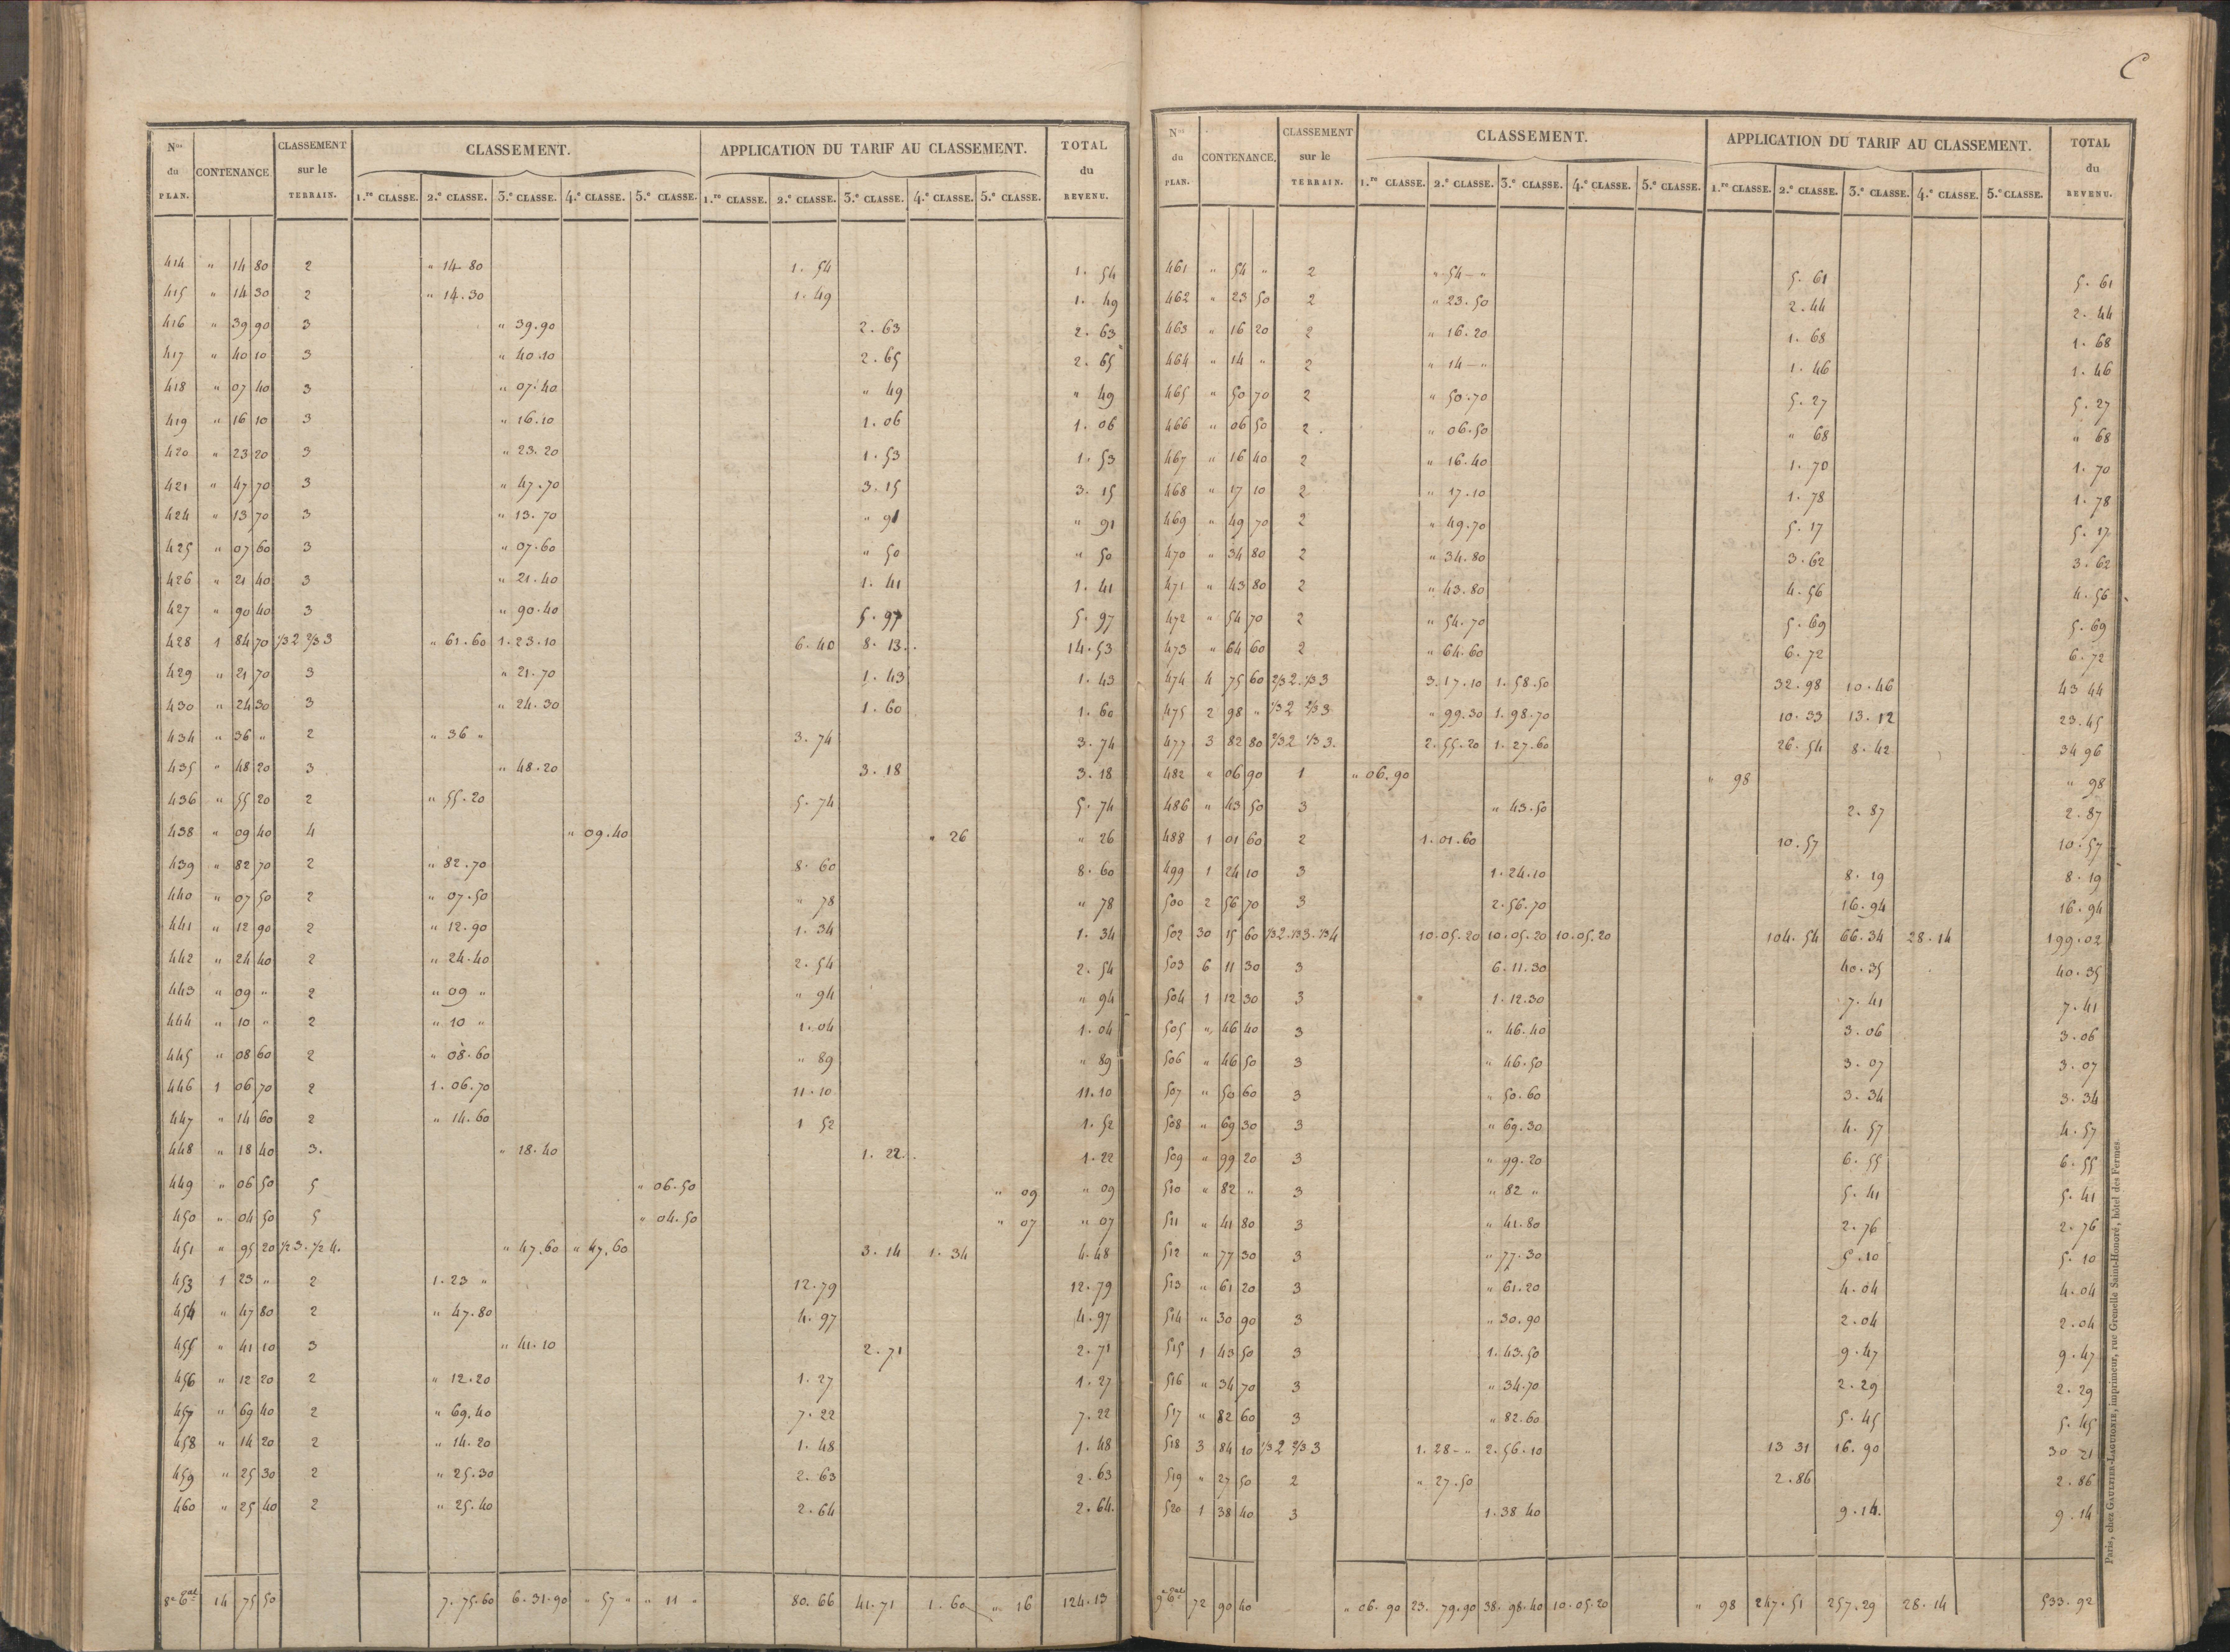 C
Nos du PLAN. CONTENANCE. CLASSEMENT sur le TERRAIN. CLASSEMENT. APPLICATION DU TARIF AU CLASSEMENT. TOTAL du REVENU.
1.re CLASSE. 2.e CLASSE. 3.e CLASSE. 4.e CLASSE. 5.e CLASSE. 1.re CLASSE. 2.e CLASSE. 3.e CLASSE. 4.e CLASSE. 5.e CLASSE.
414 " 14 80 2 " 14-80 1. 54 1. 54
415 " 14 30 2 " 14.30 1. 49 1. 49
416 " 39 90 3 " 39.90 2. 63 2. 63
417 " 40 10 3 " 40.10 2. 65 2. 65
418 " 07 40 3 " 07.40 " 49 " 49
419 " 16 10 3 " 16.10 1. 06 1. 06
420 " 23 20 3 " 23.20 1. 53 1. 53
421 " 47 70 3 " 47.70 3. 15 3. 15
424 " 13 70 3 " 13.70 " 91 " 91
425 " 07 60 3 " 07.60 " 50 " 50
426 " 21 40 3 " 21.40 1. 41 1. 41
427 " 90 40 3 " 90.40 5. 97 5. 97
428 1 84 70 1/3 2 2/3 3 " 61.60 1.23.10 6. 40 8. 13. 14.53
429 " 21 70 3 " 21.70 1. 43 1. 43
430 " 24 30 3 " 24.30 1. 60 1. 60
434 " 36 " 2 " 36 " 3. 74 3. 74
435 " 48 20 3 " 48.20 3. 18 3. 18
436 " 55 20 2 " 55.20 5. 74 5. 74
438 " 09 40 4 " 09.40 " 26 " 26
439 " 82 70 2 " 82.70 8. 60 8. 60
440 " 07 50 2 " 07.50 " 78 " 78
441 " 12 90 2 " 12.90 1. 34 1. 34
442 " 24 40 2 " 24.40 2. 54 2. 54
443 " 09 " 2 " 09 " " 94 " 94
444 " 10 " 2 " 10 " 1.04 1.04
445 " 08 60 2 " 08.60 " 89 " 89
446 1 06 70 2 1.06.70 11.10 11.10
447 " 14 60 2 " 14.60 1 52 1. 52
448 " 18 40 3. " 18.40 1. 22. 1.22
449 " 06 50 5 " 06.50 " 09 " 09
450 " 04 50 5 " 04.50 " 07 " 07
451 " 95 20 1/2 3. 1/2 4. " 47.60 " 47.60 3. 14 1. 34 4.48
453 1 23 " 2 1.23 " 12.79 12.79
454 " 47 80 2 " 47.80 4. 97 4.97
455 " 41 10 3 " 41.10 2. 71 2. 71
456 " 12 20 2 " 12.20 1. 27 1. 27
457 " 69 40 2 " 69.40 7. 22 7. 22
458 " 14 20 2 " 14.20 1. 48 1. 48
459 " 25 30 2 " 25.30 2. 63 2. 63
460 " 25 40 2 " 25.40 2. 64 2. 64.
14 75 50 7. 75.60 6.31.90 " 57 " " 11 " 80. 66 41. 71 1. 60 " 16 124.13
Nos du PLAN. CONTENANCE. CLASSEMENT sur le TERRAIN. CLASSEMENT. APPLICATION DU TARIF AU CLASSEMENT. TOTAL du REVENU.
1.re CLASSE. 2.e CLASSE. 3.e CLASSE. 4.e CLASSE. 5.e CLASSE. 1.re CLASSE. 2.e CLASSE. 3.e CLASSE. 4.e CLASSE. 5.e CLASSE.
461 " 54 " 2 " 54-" 5. 61 5. 61
462 " 23 50 2 " 23.50 2.44 2. 44
463 " 16 20 2 " 16.20 1. 68 1. 68
464 " 14 " 2 " 14-" 1. 46 1. 46
465 " 50 70 2 " 50.70 5. 27 5. 27
466 " 06 50 2. " 06.50 " 68 " 68
467 " 16 40 2 " 16.40 1. 70 1. 70
468 " 17 10 2 " 17.10 1. 78 1. 78
469 " 49 70 2 " 49.70 5. 17 5. 17
470 " 34 80 2 " 34.80 3.62 3. 62
471 " 43 80 2 " 43.80 4.56 4.56
472 " 54 70 2 " 54.70 5. 69 5. 69
473 " 64 60 2 " 64.60 6.72 6.72
474 4 75 60 2/3 2. 1/3 3 3.17.10 1.58.50 32.98 10.46 43 44
475 2 98 " 1/3 2 2/3 3 " 99.30 1.98.70 10.33 13.12 23.45
477 3 82 80 2/3 2 1/3 3. 2.55.20 1.27.60 26.54 8.42 34 96
482 " 06 90 1 " 06.90 " 98 " 98
486 " 43 50 3 " 43.50 2. 87 2.87
488 1 01 60 2 1.01.60 10.57 10.57
499 1 24 10 3 1.24.10 8. 19 8. 19
500 2 56 70 3 2.56.70 16.94 16.94
502 30 15 60 1/3 2. 1/3 3. 1/3 4. 10.05.20 10.05.20 10.05.20 104.54 66.34 28.14 199.02
503 6 11 30 3 6.11.30 40.35 40.35
504 1 12 30 3 1.12.30 7. 41 7.41
505 " 46 40 3 " 46.40 3.06 3.06
506 " 46 50 3 " 46.50 3. 07 3. 07
507 " 50 60 3 " 50.60 3. 34 3. 34
508 " 69 30 3 " 69.30 4. 57 4. 57
509 " 99 20 3 " 99.20 6. 55 6. 55
510 " 82 " 3 " 82 " 5. 41 5. 41
511 " 41 80 3 " 41.80 2.76 2.76
512 " 77 30 3 " 77.30 5.10 5. 10
513 " 61 20 3 " 61.20 4.04 4.04
514 " 30 90 3 " 30.90 2.04 2.04
515 1 43 50 3 1.43.50 9.47 9.47
516 " 34 70 3 " 34.70 2.29 2.29
517 " 82 60 3 " 82.60 5.45 5.45
518 3 84 10 1/3 2 2/3 3 1.28-" 2.56.10 13 31 16.90 30 21
519 " 27 50 2 " 27.50 2.86 2.86
520 1 38 40 3 1.38 40 9.14. 9.14
72 90 40 " 06.90 23. 79.90 38.98.40 10.05.20 " 98 247.51 257.29 28.14 533.92
Paris, chez GAULTIER-LAGUIONIE, imprimeur, rue Grenelle Saint-Honoré, hôtel des Fermes.